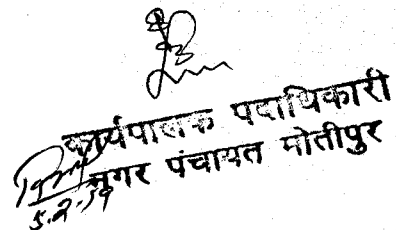 कार्यपालक पदाधिकारी
नगर पंचायत मोतीपुर
5.2.19